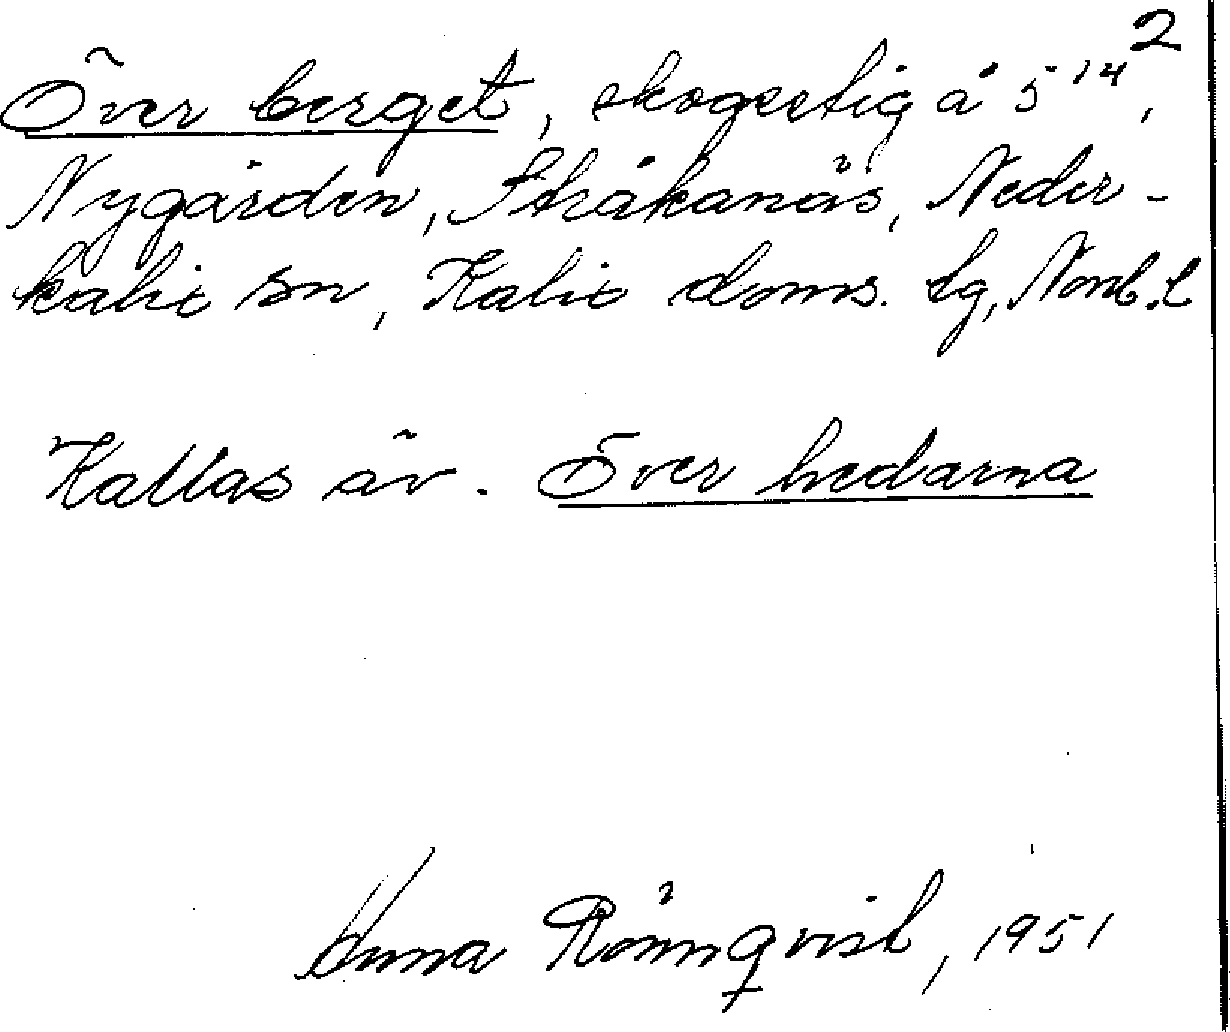 2
Över berget, skogsstig å 5¹⁴,
Nygården, Stråkanäs, Neder-
kalix sn, Kalix doms. lg, Norrb. l
Kallas äv. Över hedarna
Anna Rönnqvist, 1951